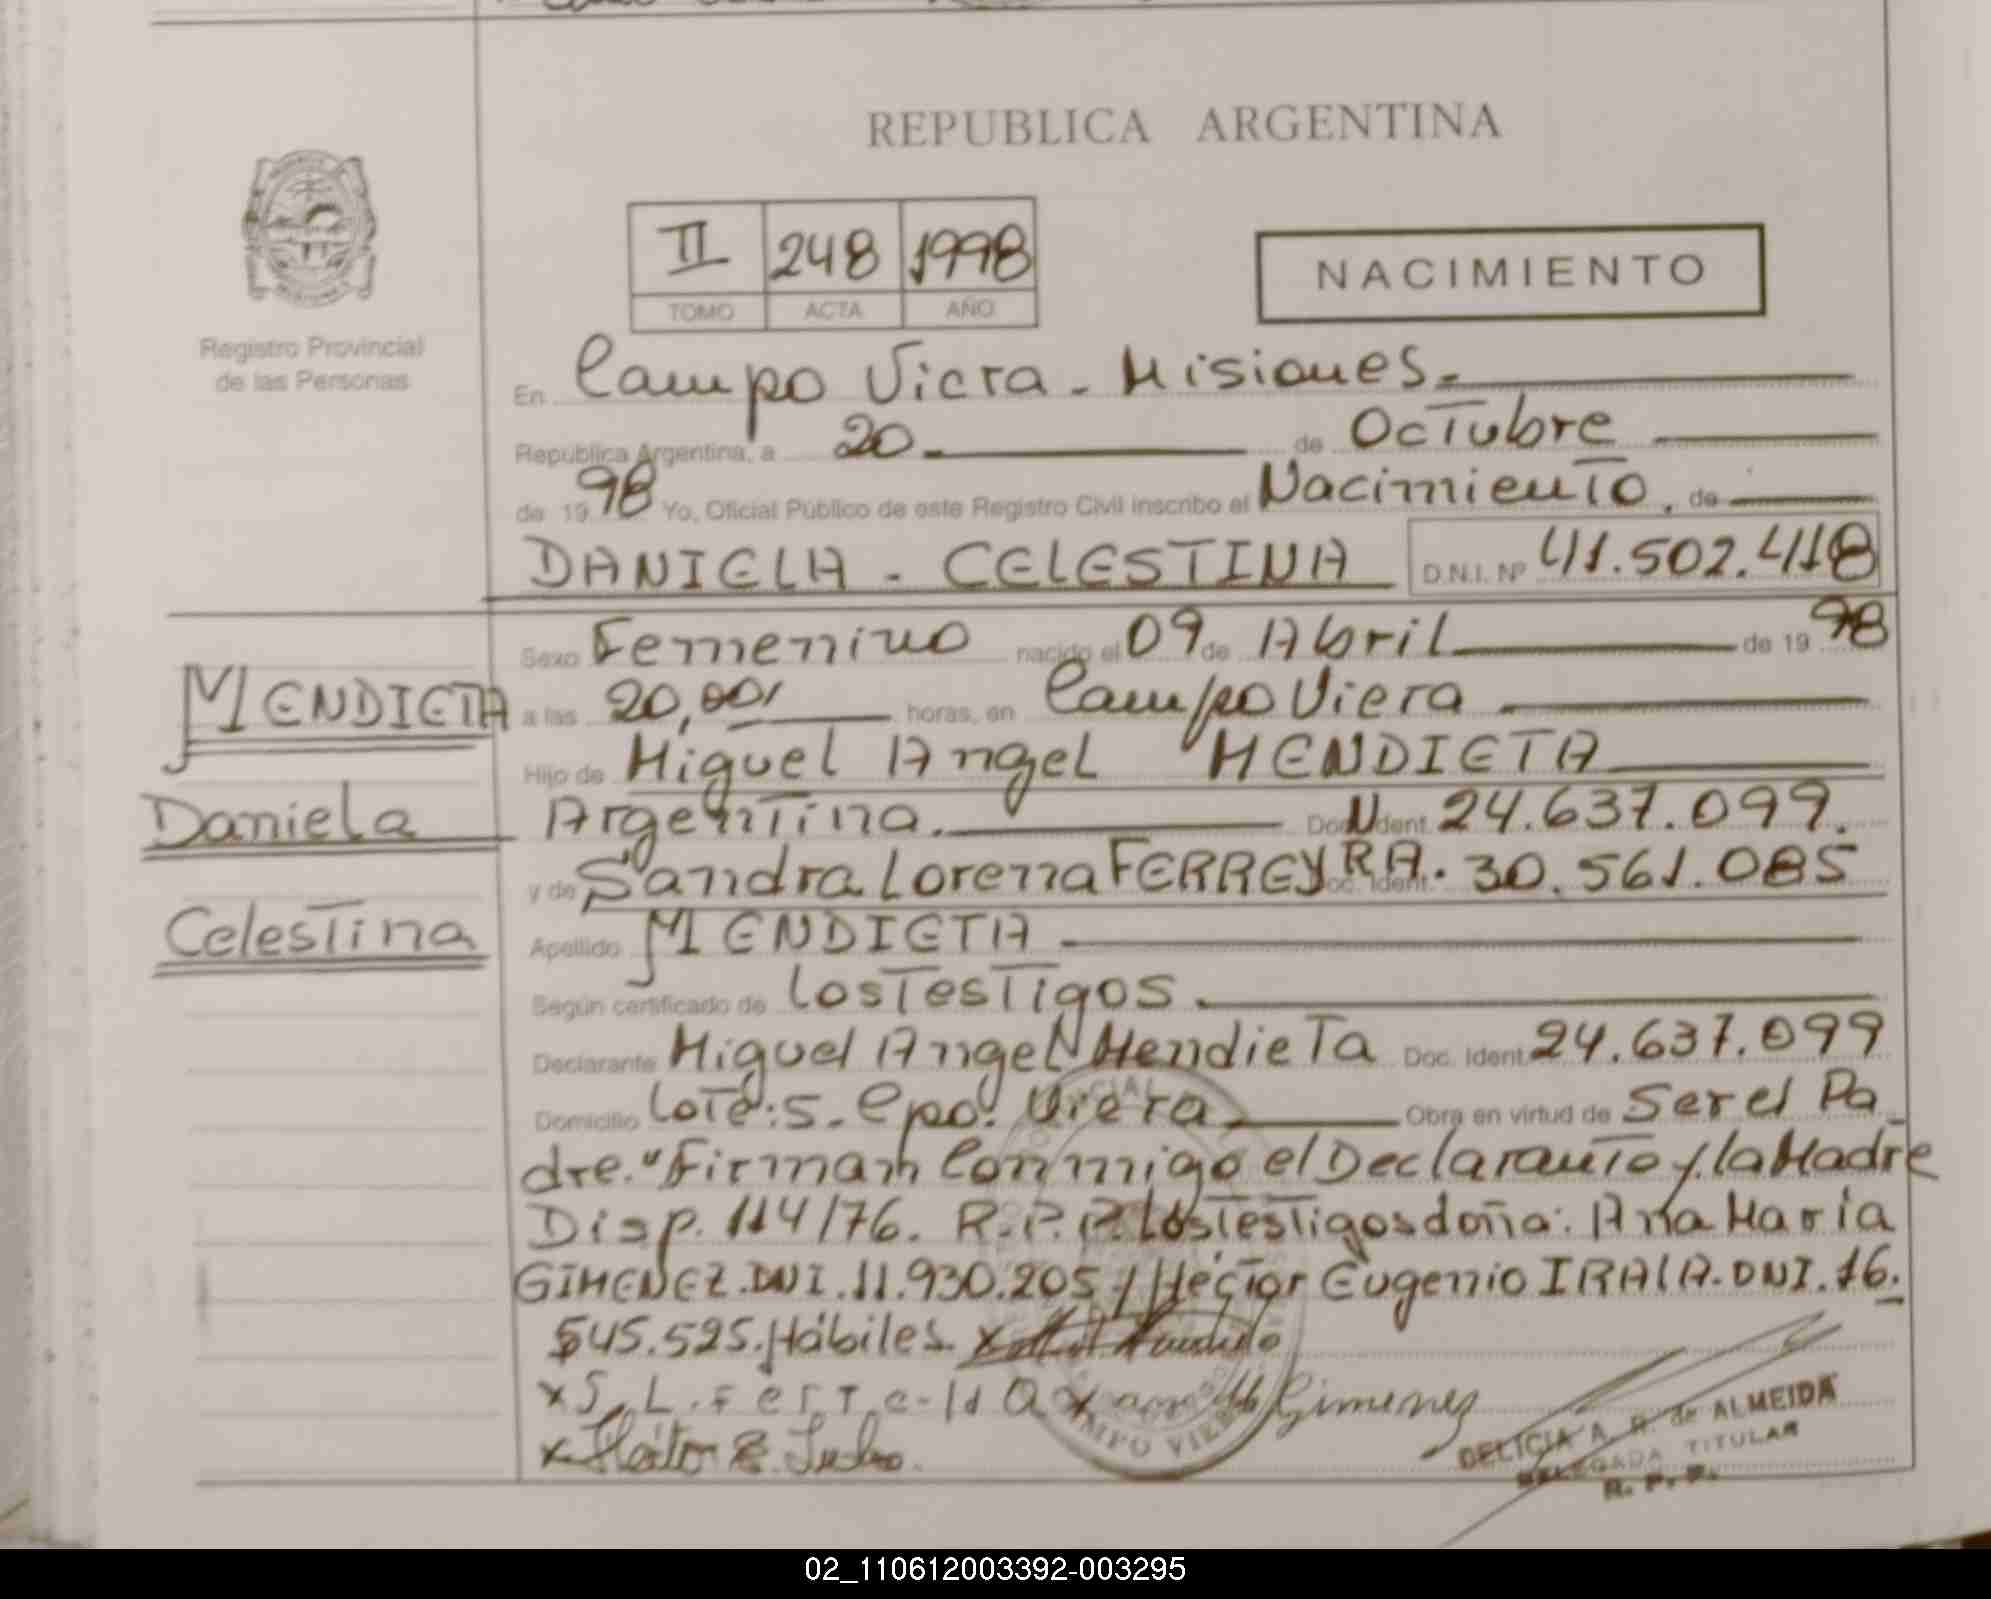 REPUBLICA ARGENTINA
II 248 1998
TOMO ACTA AÑO
NACIMIENTO
Registro Provincial
de las Personas
En Campo Viera - Misiones.
República Argentina, a 20 de Octubre
de 1998 Yo, Oficial Público de este Registro Civil inscribo el Nacimiento, de
DANIELA - CELESTINA D.N.I. Nº 41.502.418
MENDIETA
Daniela
Celestina
Sexo Femenino nacido el 09 de Abril de 1998
a las 20,00, horas, en Campo Viera
Hijo de Miguel Angel MENDIETA
Argentina. Doc. Ident. 24.637.099.
y de Sandra Lorena FERREYRA. Doc. Ident. 30.561.085
Apellido MENDIETA
Según certificado de los Testigos.
Declarante Miguel Angel Mendieta Doc. Ident. 24.637.099
Domicilio Lote: 5. Cpo. Viera Obra en virtud de Ser el Pa
dre. "Firman Conmigo el Declarante y la Madre
Disp. 114/76. R.P.P. Los Testigos doña: Ana María
GIMENEZ. DNI. 11.930.205 y Héctor Eugenio IRALA. DNI. 16.
545.525. Hábiles.
x S. L.
x Gimenez
x
CAMPO VIERA
DELICIA A. R. de ALMEIDA
DELEGADA TITULAR
R. P. P.
02_110612003392-003295